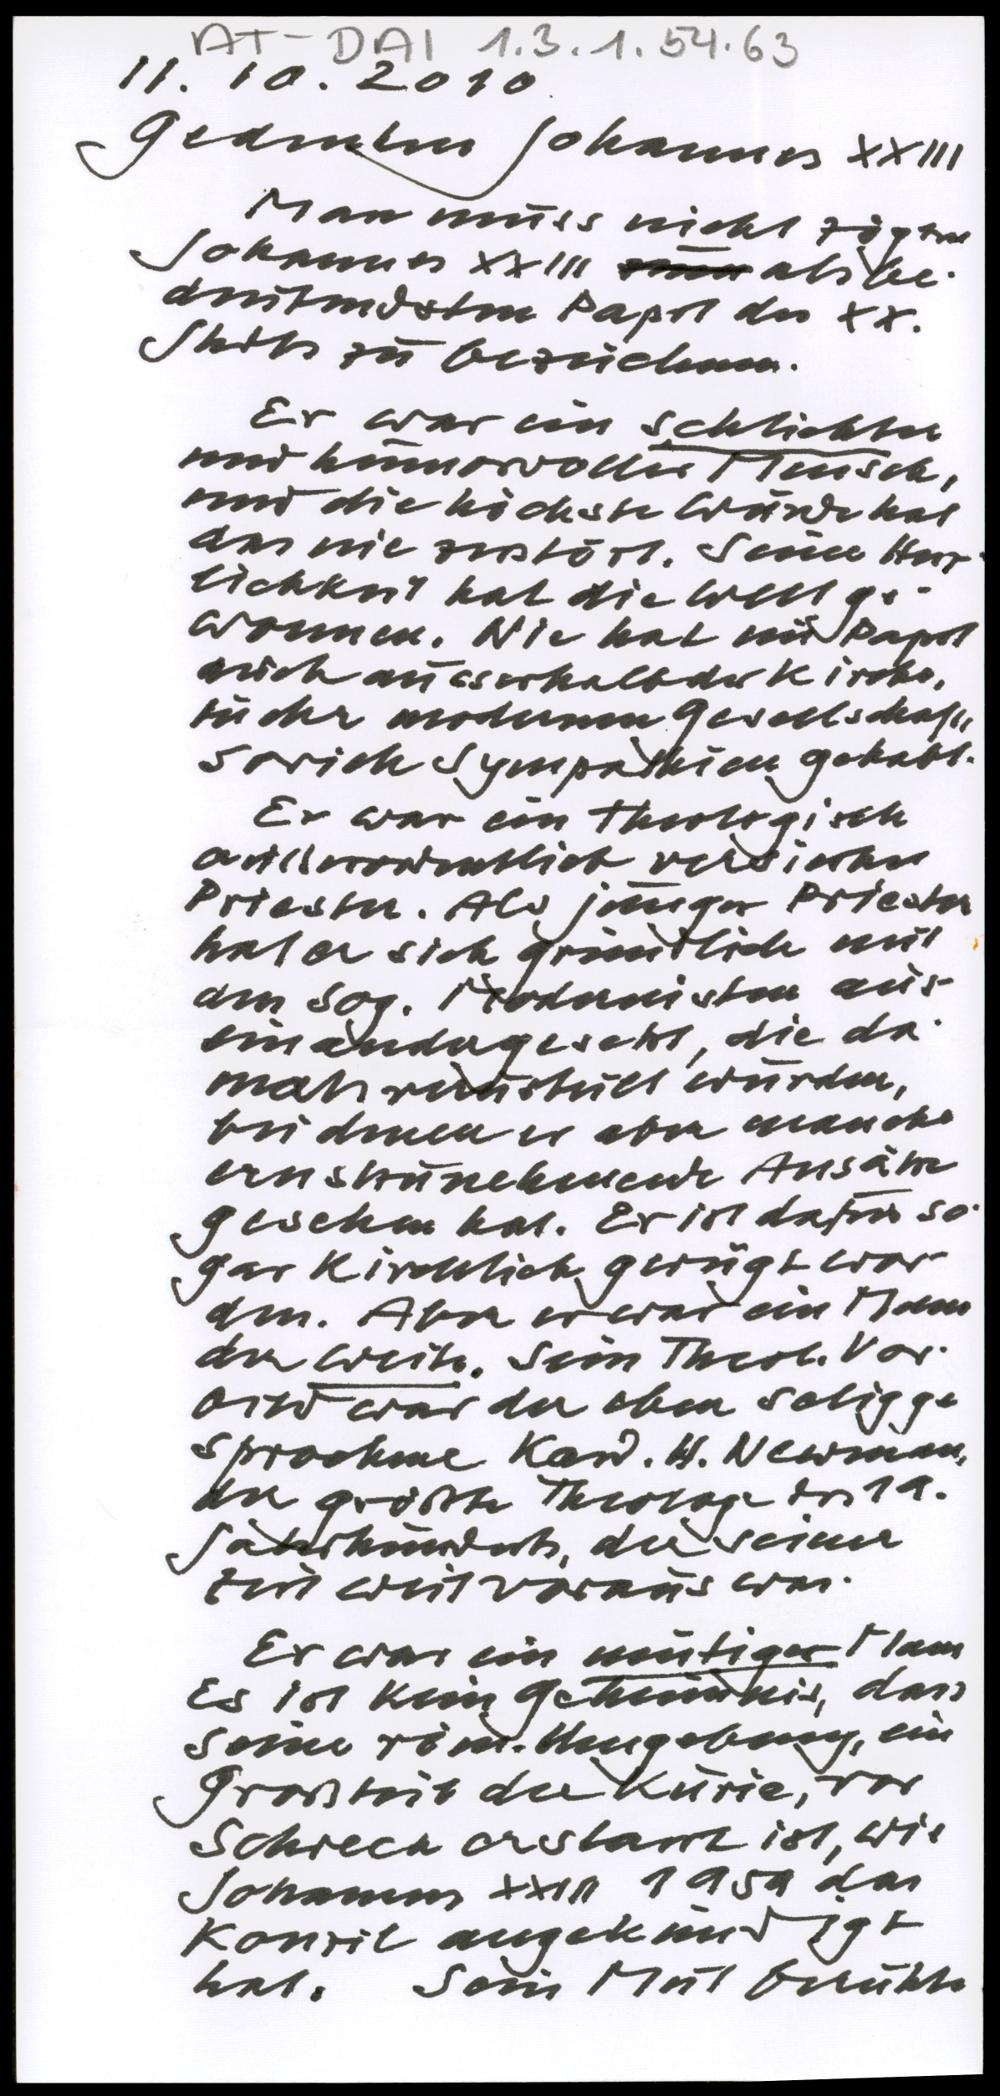 AT-DAI 1.3.1.54.63
11.10.2010
Gedenken Johannes XXIII
Man muss nicht zögern
Johannes XXIII als be-
deutendsten Papst des XX.
Jhdts zu bezeichnen.
Er war ein schlichter
und humorvoller Mensch,
und die höchste Würde hat
das nie zerstört. Seine Herz-
lichkeit hat die Welt ge-
wonnen. Nie hat ein Papst
auch ausserhalb der Kirche,
in der modernen Gesellschaft,
soviele Sympathien gehabt.
Er war ein theologisch
ausserordentlich versierter
Priester. Als junger Priester
hat er sich gründlich mit
den sog. Modernisten aus-
einandergesetzt, die da-
mals verurteilt wurden,
bei denen er aber manche
ernstzunehmende Ansätze
gesehen hat. Er ist dafür so-
gar kirchlich gerügt wor-
den. Aber er war ein Mann
der Weite. Sein Theol. Vor-
bild war der eben seligge
sprochene Kard. H. Newman,
der größte Theologe des 19.
Jahrhunderts, der seiner
Zeit weit voraus war.
Er war ein mutiger Mann
Es ist kein Geheimnis, dass
seine röm. Umgebung, ein
Großteil der Kurie, vor
Schreck erstarrt ist, wie
Johannes XXIII 1959 das
Konzil angekündigt
hat. Sein Mut beruhte